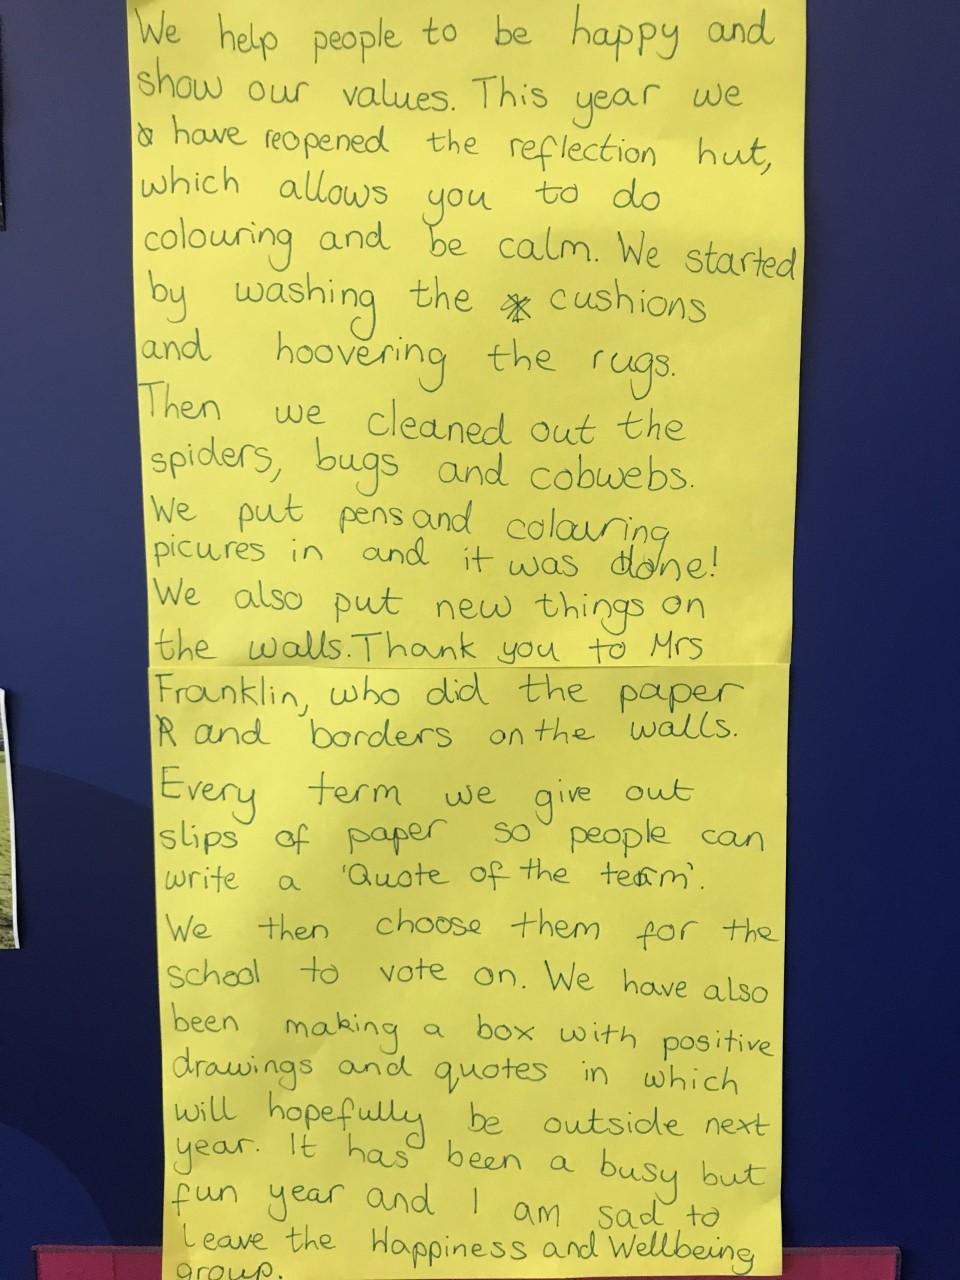 We help people to be happy and
show our values. This year we
have reopened the reflection hut,
which allows you to do
colouring and be calm. We started
by washing the cushions
and hoovering the rugs.
Then we cleaned out the
spiders, bugs and cobwebs.
We put pens and colouring
picures in and it was done!
We also put new things on
the walls. Thank you to Mrs
Franklin, who did the paper
and borders on the walls.
Every term we give out
slips of paper so people can
write a 'Quote of the term'.
We then choose them for the
school to vote on. We have also
been making a box with positive
drawings and quotes in which
will hopefully be outside next
year. It has been a busy but
fun year and I am sad to
leave the Happiness and Wellbeing
group.